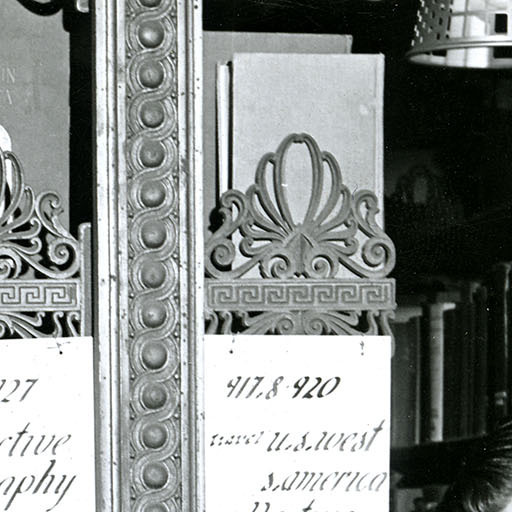 IN
A
27
ctive
aphy
917.8-920
travel u.s.west
s.america